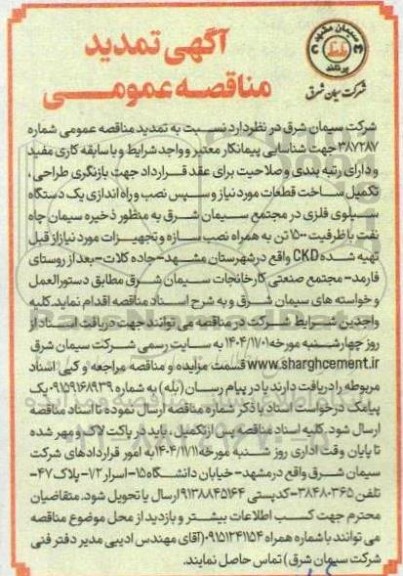 سیمان مشهد
پرتلند
شرکت سیمان شرق
آگهی تمدید
مناقصه عمومی
شرکت سیمان شرق در نظر دارد نسبت به تمدید مناقصه عمومی شماره
۳۸۷۲۸۷ جهت شناسایی پیمانکار معتبر و واجد شرایط و با سابقه کاری مفید
و دارای رتبه بندی و صلاحیت برای عقد قرارداد جهت بازنگری طراحی،
تکمیل ساخت قطعات مورد نیاز و سپس نصب و راه اندازی یک دستگاه
سیلوی فلزی در مجتمع سیمان شرق به منظور ذخیره سیمان چاه
نفت با ظرفیت ۱۵۰۰ تن به همراه نصب سازه و تجهیزات مورد نیاز از قبل
تهیه شده CKD واقع در شهرستان مشهد-جاده کلات-بعد از روستای
فارمد- مجتمع صنعتی کارخانجات سیمان شرق مطابق دستورالعمل
و خواسته های سیمان شرق و به شرح اسناد مناقصه اقدام نماید. کلیه
واجدین شرایط شرکت در مناقصه می توانند جهت دریافت اسناد از
روز چهارشنبه مورخه ۱۴۰۴/۱۱/۰۱ به سایت رسمی شرکت سیمان شرق
www.sharghcement.ir قسمت مزایده و مناقصه مراجعه و کپی اسناد
مربوطه را دریافت دارند یا در پیام رسان (بله) به شماره ۰۹۱۵۹۱۶۸۹۳۹ یک
پیامک درخواست اسناد با ذکر شماره مناقصه ارسال نموده تا اسناد مناقصه
ارسال شود. کلیه اسناد مناقصه پس از تکمیل، باید در پاکت لاک و مهر شده
تا پایان وقت اداری روز شنبه مورخه ۱۴۰۴/۱۱/۱۱ به امور قراردادهای شرکت
سیمان شرق واقع در مشهد- خیابان دانشگاه ۱۵-اسرار ۷۲- پلاک ۴۷-
تلفن ۳۸۴۸۰۳۶۵-کدپستی ۹۱۳۸۸۴۵۱۶۴ ارسال یا تحویل شود. متقاضیان
محترم جهت کسب اطلاعات بیشتر و بازدید از محل موضوع مناقصه
می توانند با شماره همراه ۰۹۱۵۱۲۴۱۱۵۴ (آقای مهندس ادیبی مدیر دفتر فنی
شرکت سیمان شرق) تماس حاصل نمایند.